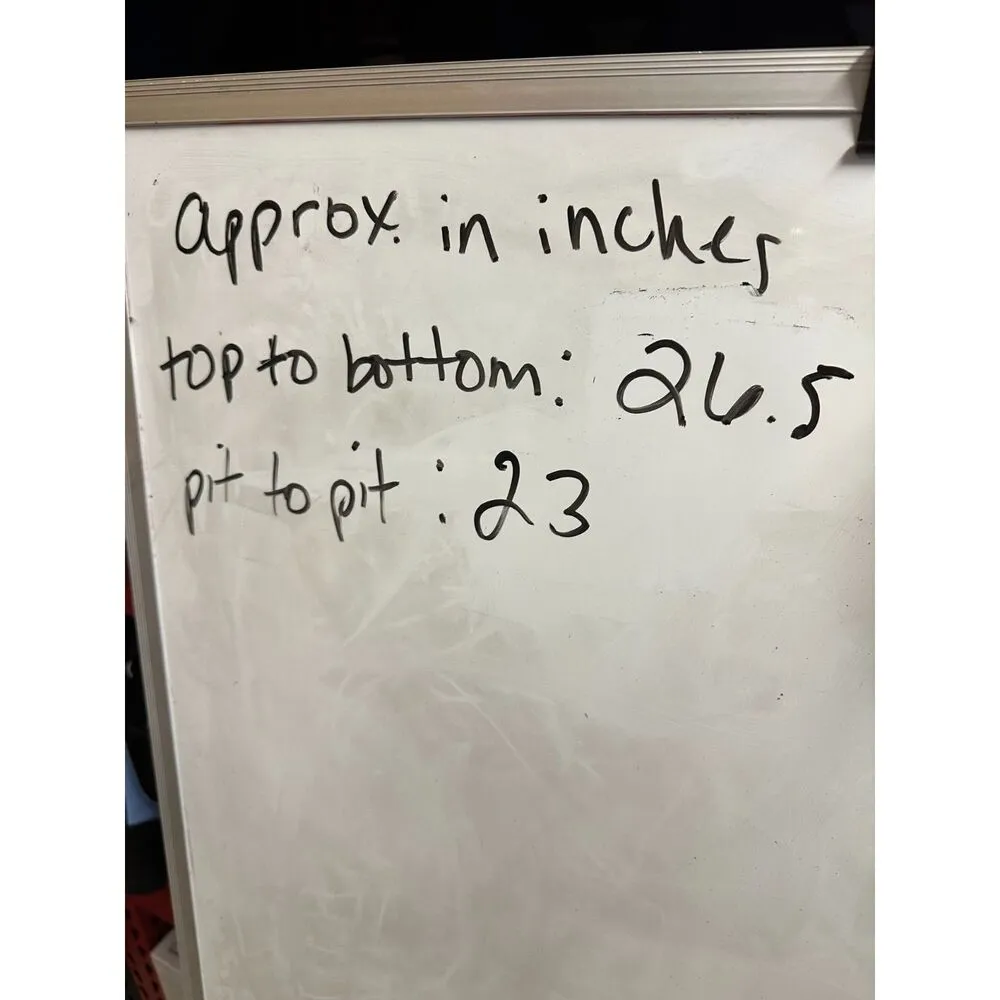 approx. in inches
top to bottom: 26.5
pit to pit: 23